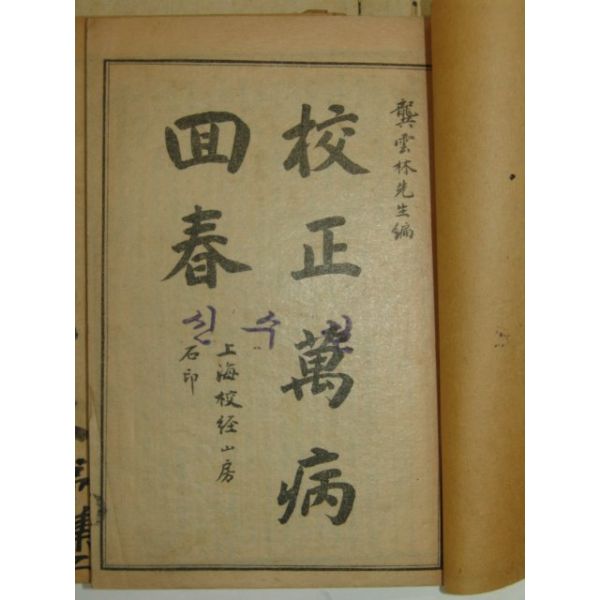 龔雲林先生編
校正萬病
回春
上海校経山房
石印
신수